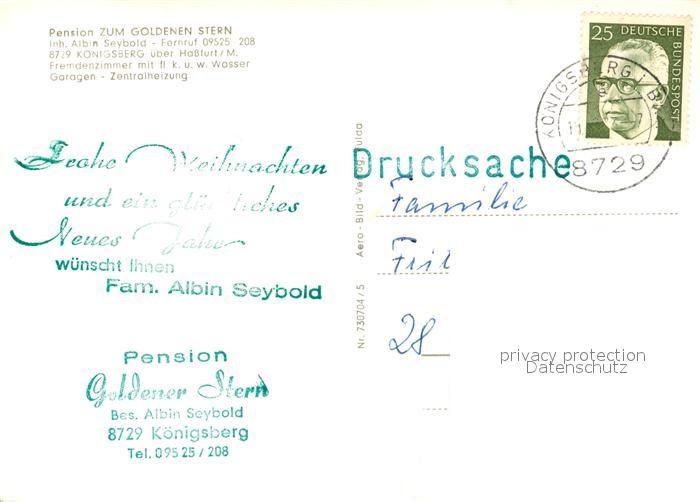 Pension ZUM GOLDENEN STERN
Inh. Albin Seybold - Fernruf 09525 208
8729 KÖNIGSBERG über Haßfurt/M.
Fremdenzimmer mit fl k. u. w. Wasser
Garagen - Zentralheizung
25 DEUTSCHE BUNDESPOST
KÖNIGSBERG i. B
8729
Frohe Weihnachten
und ein glückliches
Neues Jahr
wünscht Ihnen
Fam. Albin Seybold
Pension
Goldener Stern
Bes. Albin Seybold
8729 Königsberg
Tel. 09525/208
Aero-Bild-Verlag, Fulda
Nr. 730704/5
Drucksache
Familie
28
privacy protection
Datenschutz